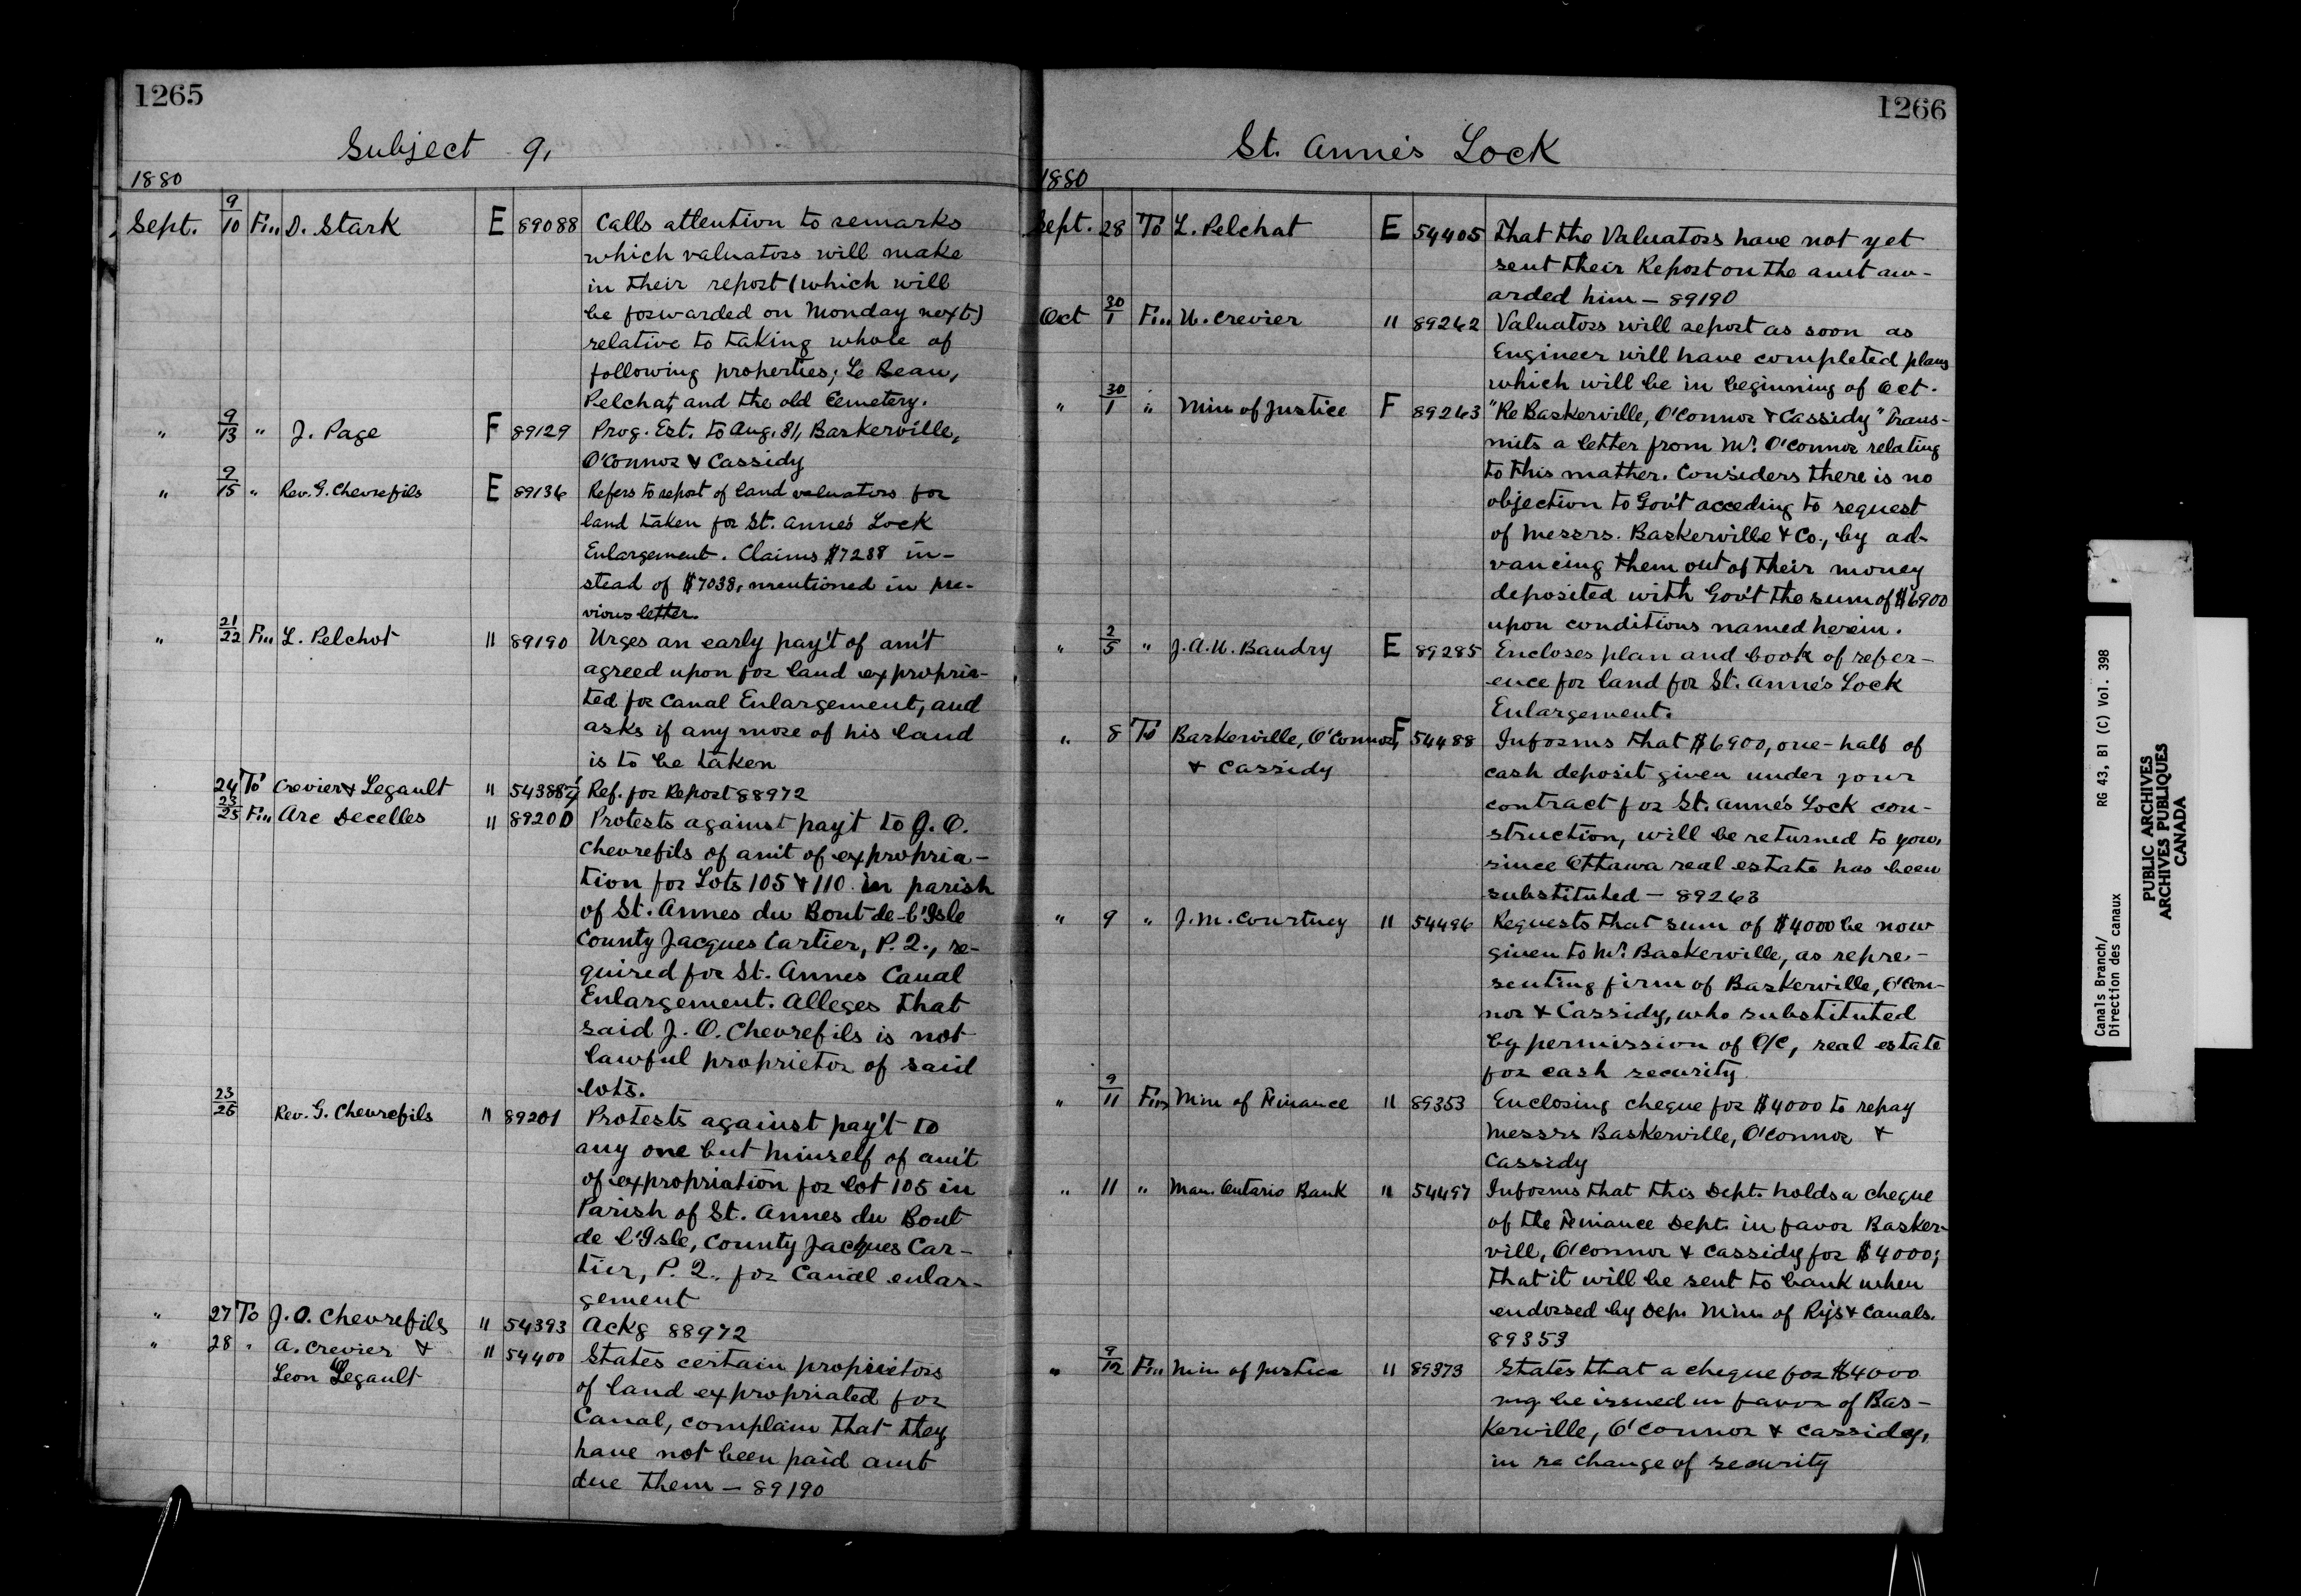 1265
Subject 9,
1880
Sept. 9/10 Fm D. Stark E 89088 Calls attention to remarks
which valuators will make
in their report (which will
be forwarded on Monday next)
relative to taking whole of
following properties; Le Beau,
Pelchat, and the old Cemetery.
" 9/13 " J. Page F 89129 Prog. Est. to Aug. 31, Baskerville,
O'Connor & Cassidy
" 9/15 " Rev. G. Chevrefils E 89136 Refers to report of land valuators for
land taken for St. Anne's Lock
Enlargement. Claims $7288 in-
stead of $7038, mentioned in pre-
vious letter.
" 21/22 Fm L. Pelchot " 89190 Urges an early pay't of am't
agreed upon for land expropria-
ted for Canal Enlargement, and
asks if any more of his land
is to be taken
24 To Crevier & Legault " Ref. for Report 88972
23/25 Fm Arc Decelles " 89200 Protests against pay't to J. O.
Chevrefils of am't of expropria-
tion for Lots 105 & 110 in parish
of St. Annes du Bout-de-l'Isle
County Jacques Cartier, P.Q., re-
quired for St. Annes Canal
Enlargement. Alleges that
said J. O. Chevrefils is not
lawful proprietor of said
lots.
23/25 Rev. G. Chevrefils " 89201 Protests against pay't to
any one but himself of am't
of expropriation for lot 105 in
Parish of St. Annes du Bout
de l'Isle, County Jacques Car-
tier, P.Q., for Canal enlar-
gement
" 27 To J. O. Chevrefils " 54393 Ackg 88972
" 28 " A. Crevier & " 54400 States certain proprietors
Leon Legault of land expropriated for
Canal, complain that they
have not been paid amt
due them — 89190
1266
St. Anne's Lock
1880
Sept. 28 To L. Pelchat E 54405 That the Valuators have not yet
sent their Report on the amt aw-
arded him — 89190
Oct 30/1 Fm U. Crevier " 89262 Valuators will report as soon as
Engineer will have completed plans
which will be in beginning of Oct.
" 30/1 " Min of Justice F 89263 "Re Baskerville, O'Connor & Cassidy" Trans-
mits a letter from Mr. O'Connor relating
to this mather. Considers there is no
objection to Gov't acceding to request
of Messrs. Baskerville & Co., by ad-
vancing them out of their money
deposited with Gov't the sum of $6900
upon conditions named herein.
" 2/5 " J. A. U. Baudry E 89285 Encloses plan and book of refer-
ence for land for St. Anne's Lock
Enlargement.
" 8 To Baskerville, O'Connor, F 54488 Informs that $6900, one-half of
& Cassidy cash deposit given under your
contract for St. Anne's Lock con-
struction, will be returned to you,
since Ottawa real estate has been
substituted — 89263
" 9 " J. M. Courtney " 54496 Requests that sum of $4000 be now
given to Mr. Baskerville, as repre-
senting firm of Baskerville, O'Con-
nor & Cassidy, who substituted
by permission of O/C, real estate
for cash security
" 9/11 Fm Min of Finance " 89353 Enclosing cheque for $4000 to repay
Messrs Baskerville, O'Connor &
Cassidy
" 11 " Man. Ontario Bank " 54497 Informs that this Dept. holds a cheque
of the Finance Dept. in favor Basker-
vill, O'Connor & Cassidy for $4000;
that it will be sent to bank when
endorsed by Dep. Min of Rys & Canals.
89353
" 9/12 Fm Min of Justice " 89373 States that a cheque for $4000
may be issued in favor of Bas-
kerville, O'Connor & Cassidy,
in re change of security
Canals Branch/
Direction des canaux
RG 43, B1 (C) Vol. 398
PUBLIC ARCHIVES
ARCHIVES PUBLIQUES
CANADA